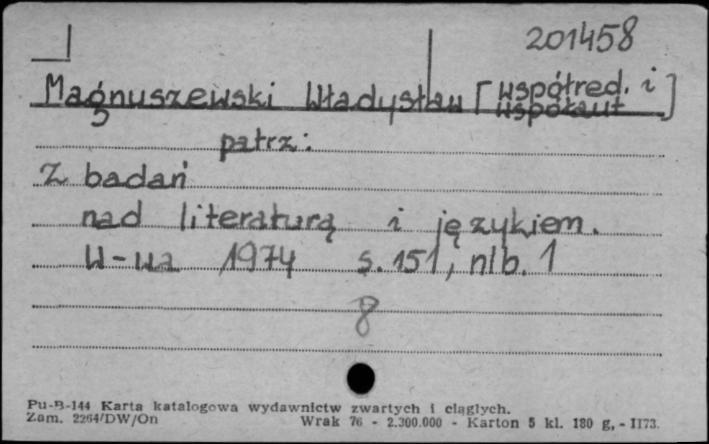 201458
Magnuszewski Władysław [współred. i współaut.]
patrz:
Z badań
nad literaturą i językiem.
W-wa 1974 s. 151, nlb. 1
8
Pu-B-144 Karta katalogowa wydawnictw zwartych i ciągłych.
Zam. 2264/DW/On Wrak 76 - 2.300.000 - Karton 5 kl. 180 g, - II73.